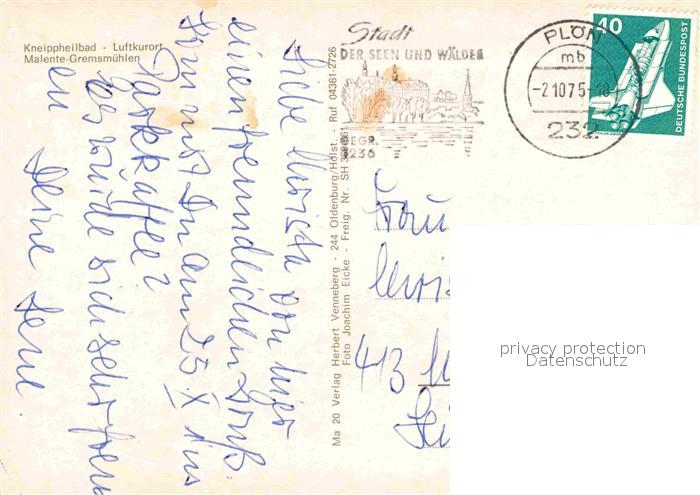 Kneippheilbad - Luftkurort
Malente-Gremsmühlen
Stadt
DER SEEN UND WÄLDER
GEGR.
1236
PLÖN
mb
-2.10.75-18
232
40
DEUTSCHE BUNDESPOST
Liebe Christa von hier
einen freundlichen Gruß.
Kommst Du am 25. X ins
Parkkaffee?
Es würde sich sehr freu
en Deine Lene.
Ma 20 Verlag Herbert Venneberg - 244 Oldenburg/Holst. - Ruf 04361-2726
Foto Joachim Eicke - Freig. Nr. SH
Frau
413
privacy protection
Datenschutz